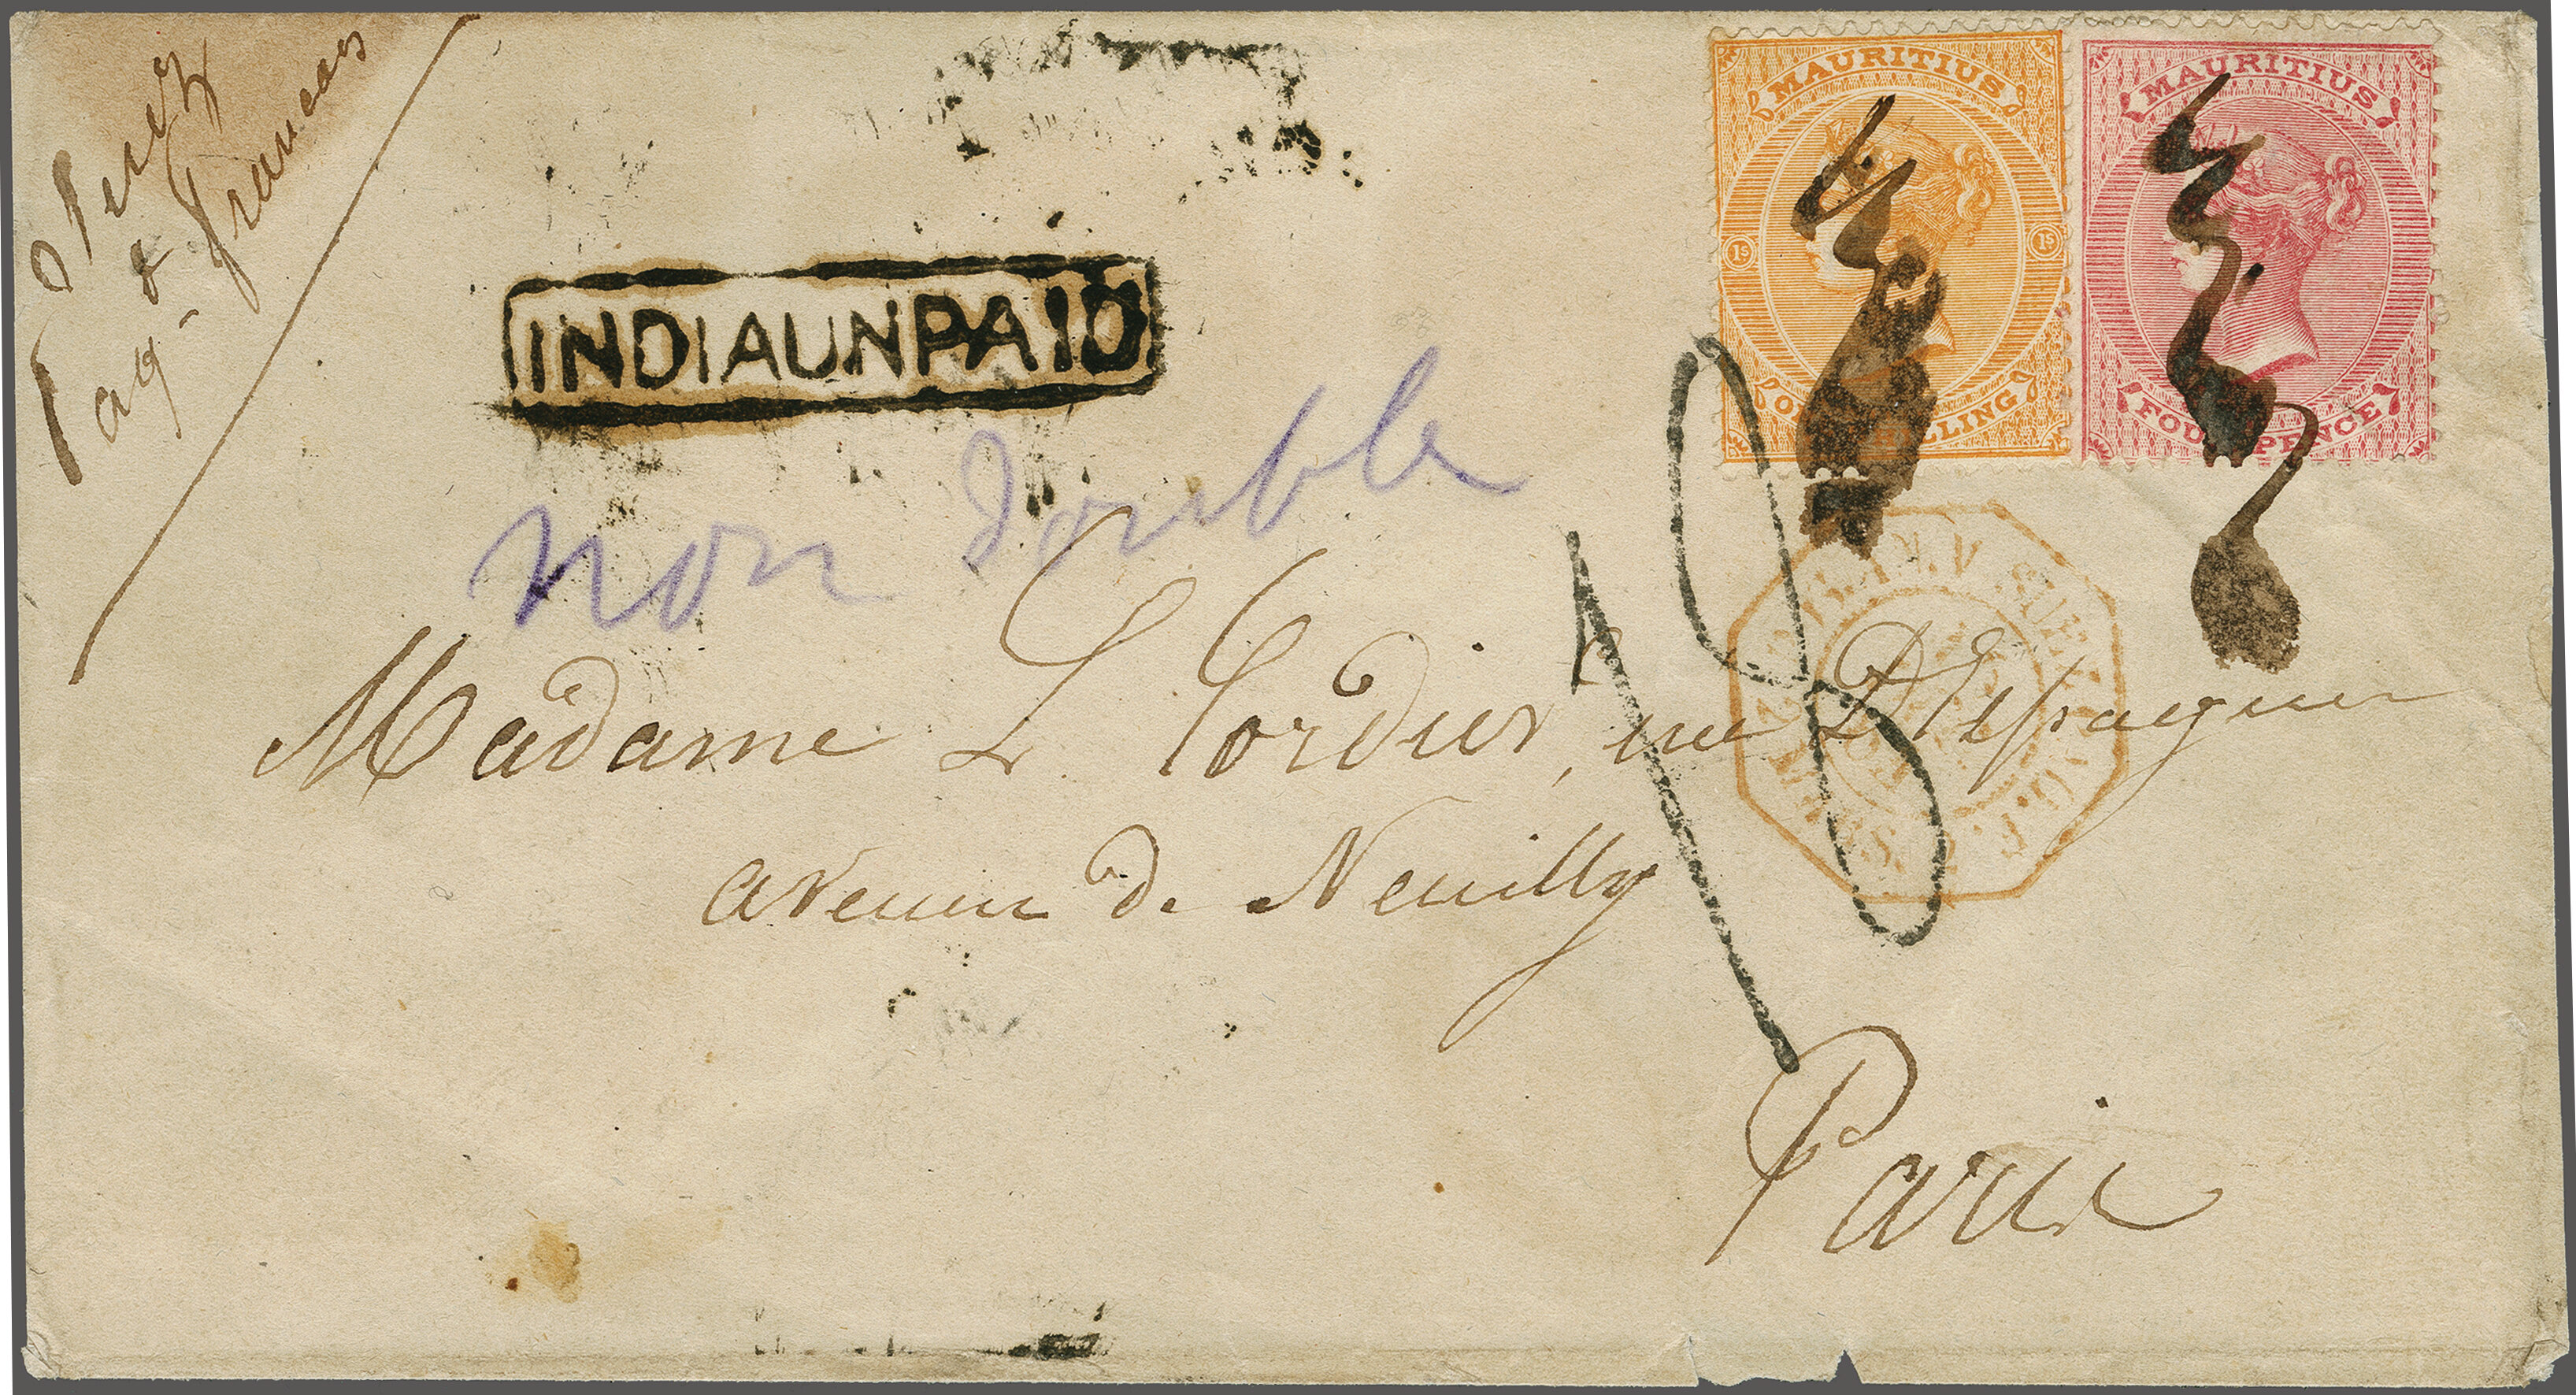 Paq. Francais
INDIA UNPAID
MAURITIUS
1s 1s
ONE SHILLING
MAURITIUS
FOUR PENCE
non double
18
Madame L Cordier, née D'Espagnac
avenue de Neuilly
Paris